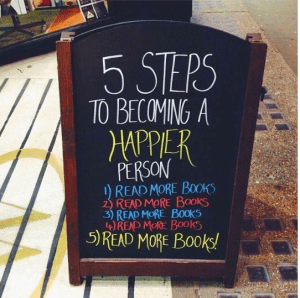 5 STEPS
TO BECOMING A
HAPPIER
PERSON
1) READ MORE BOOKS
2) READ MORE BOOKS
3) READ MORE BOOKS
4) READ MORE BOOKS
5) READ MORE BOOKS!